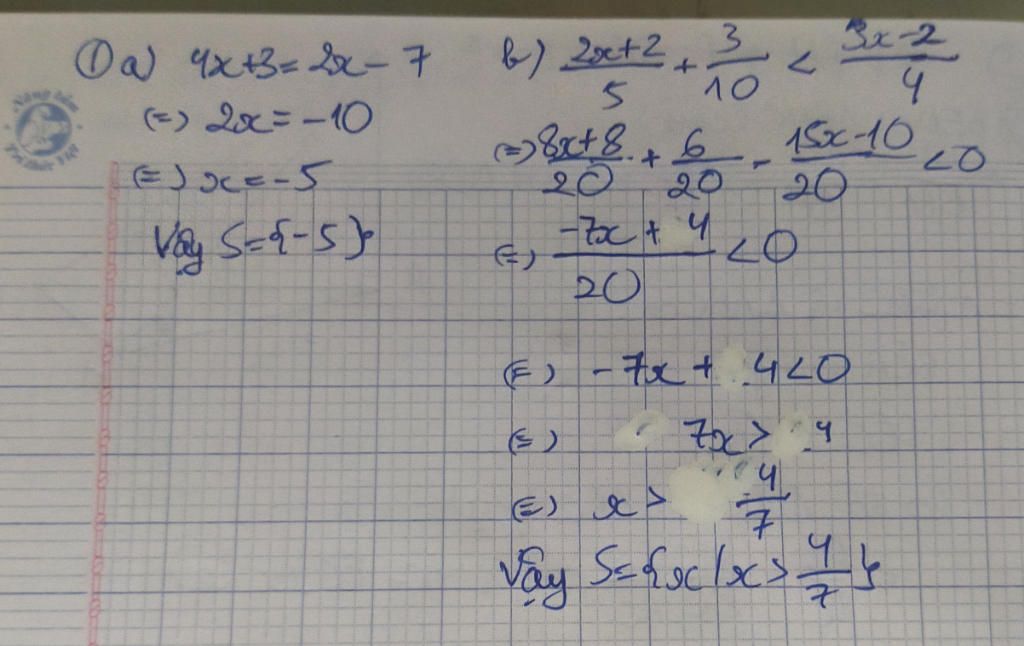 ① a) 4x+3=2x-7
(=) 2x=-10
(=) x=-5
Vậy S={-5}
b) 2x+2/5 + 3/10 < 3x-2/4
(=) 8x+8/20 + 6/20 - 15x-10/20 <0
(=) -7x+4/20 <0
(=) -7x+4<0
(=) 7x>4
(=) x>4/7
Vậy S={x/x>4/7}